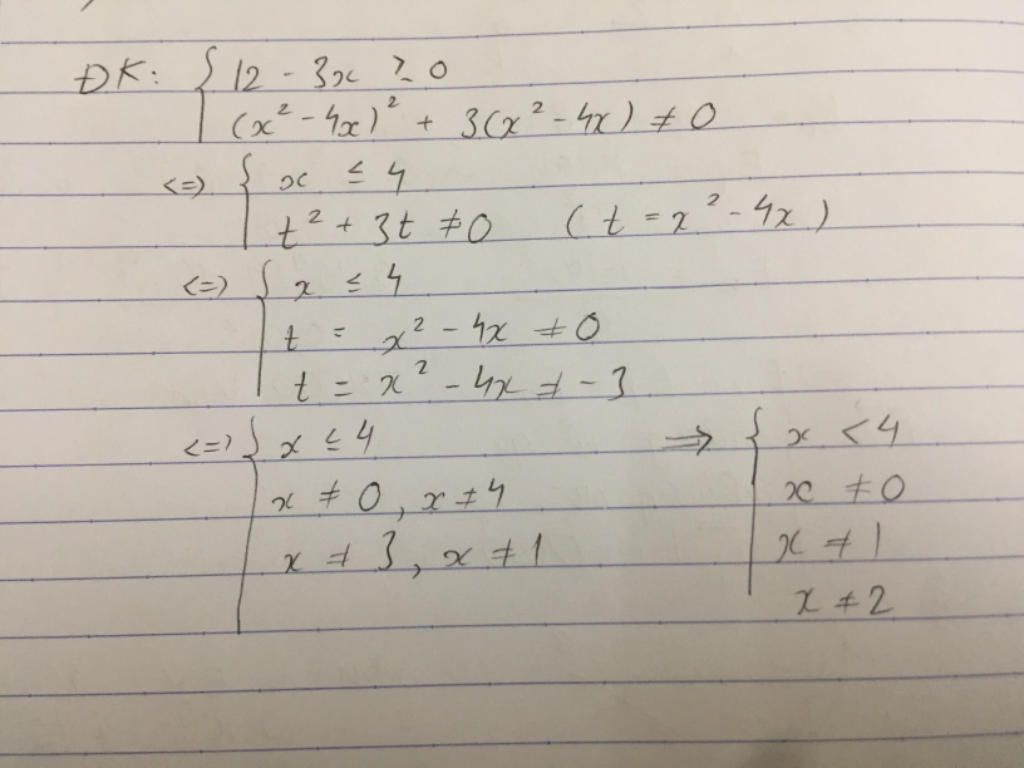 ĐK: { 12 - 3x ≥ 0
(x² - 4x)² + 3(x² - 4x) ≠ 0
<=> { x ≤ 4
t² + 3t ≠ 0 ( t = x² - 4x )
<=> { x ≤ 4
t = x² - 4x ≠ 0
t = x² - 4x ≠ -3
<=> { x ≤ 4 => { x < 4
x ≠ 0, x ≠ 4 x ≠ 0
x ≠ 3, x ≠ 1 x ≠ 1
x ≠ 2